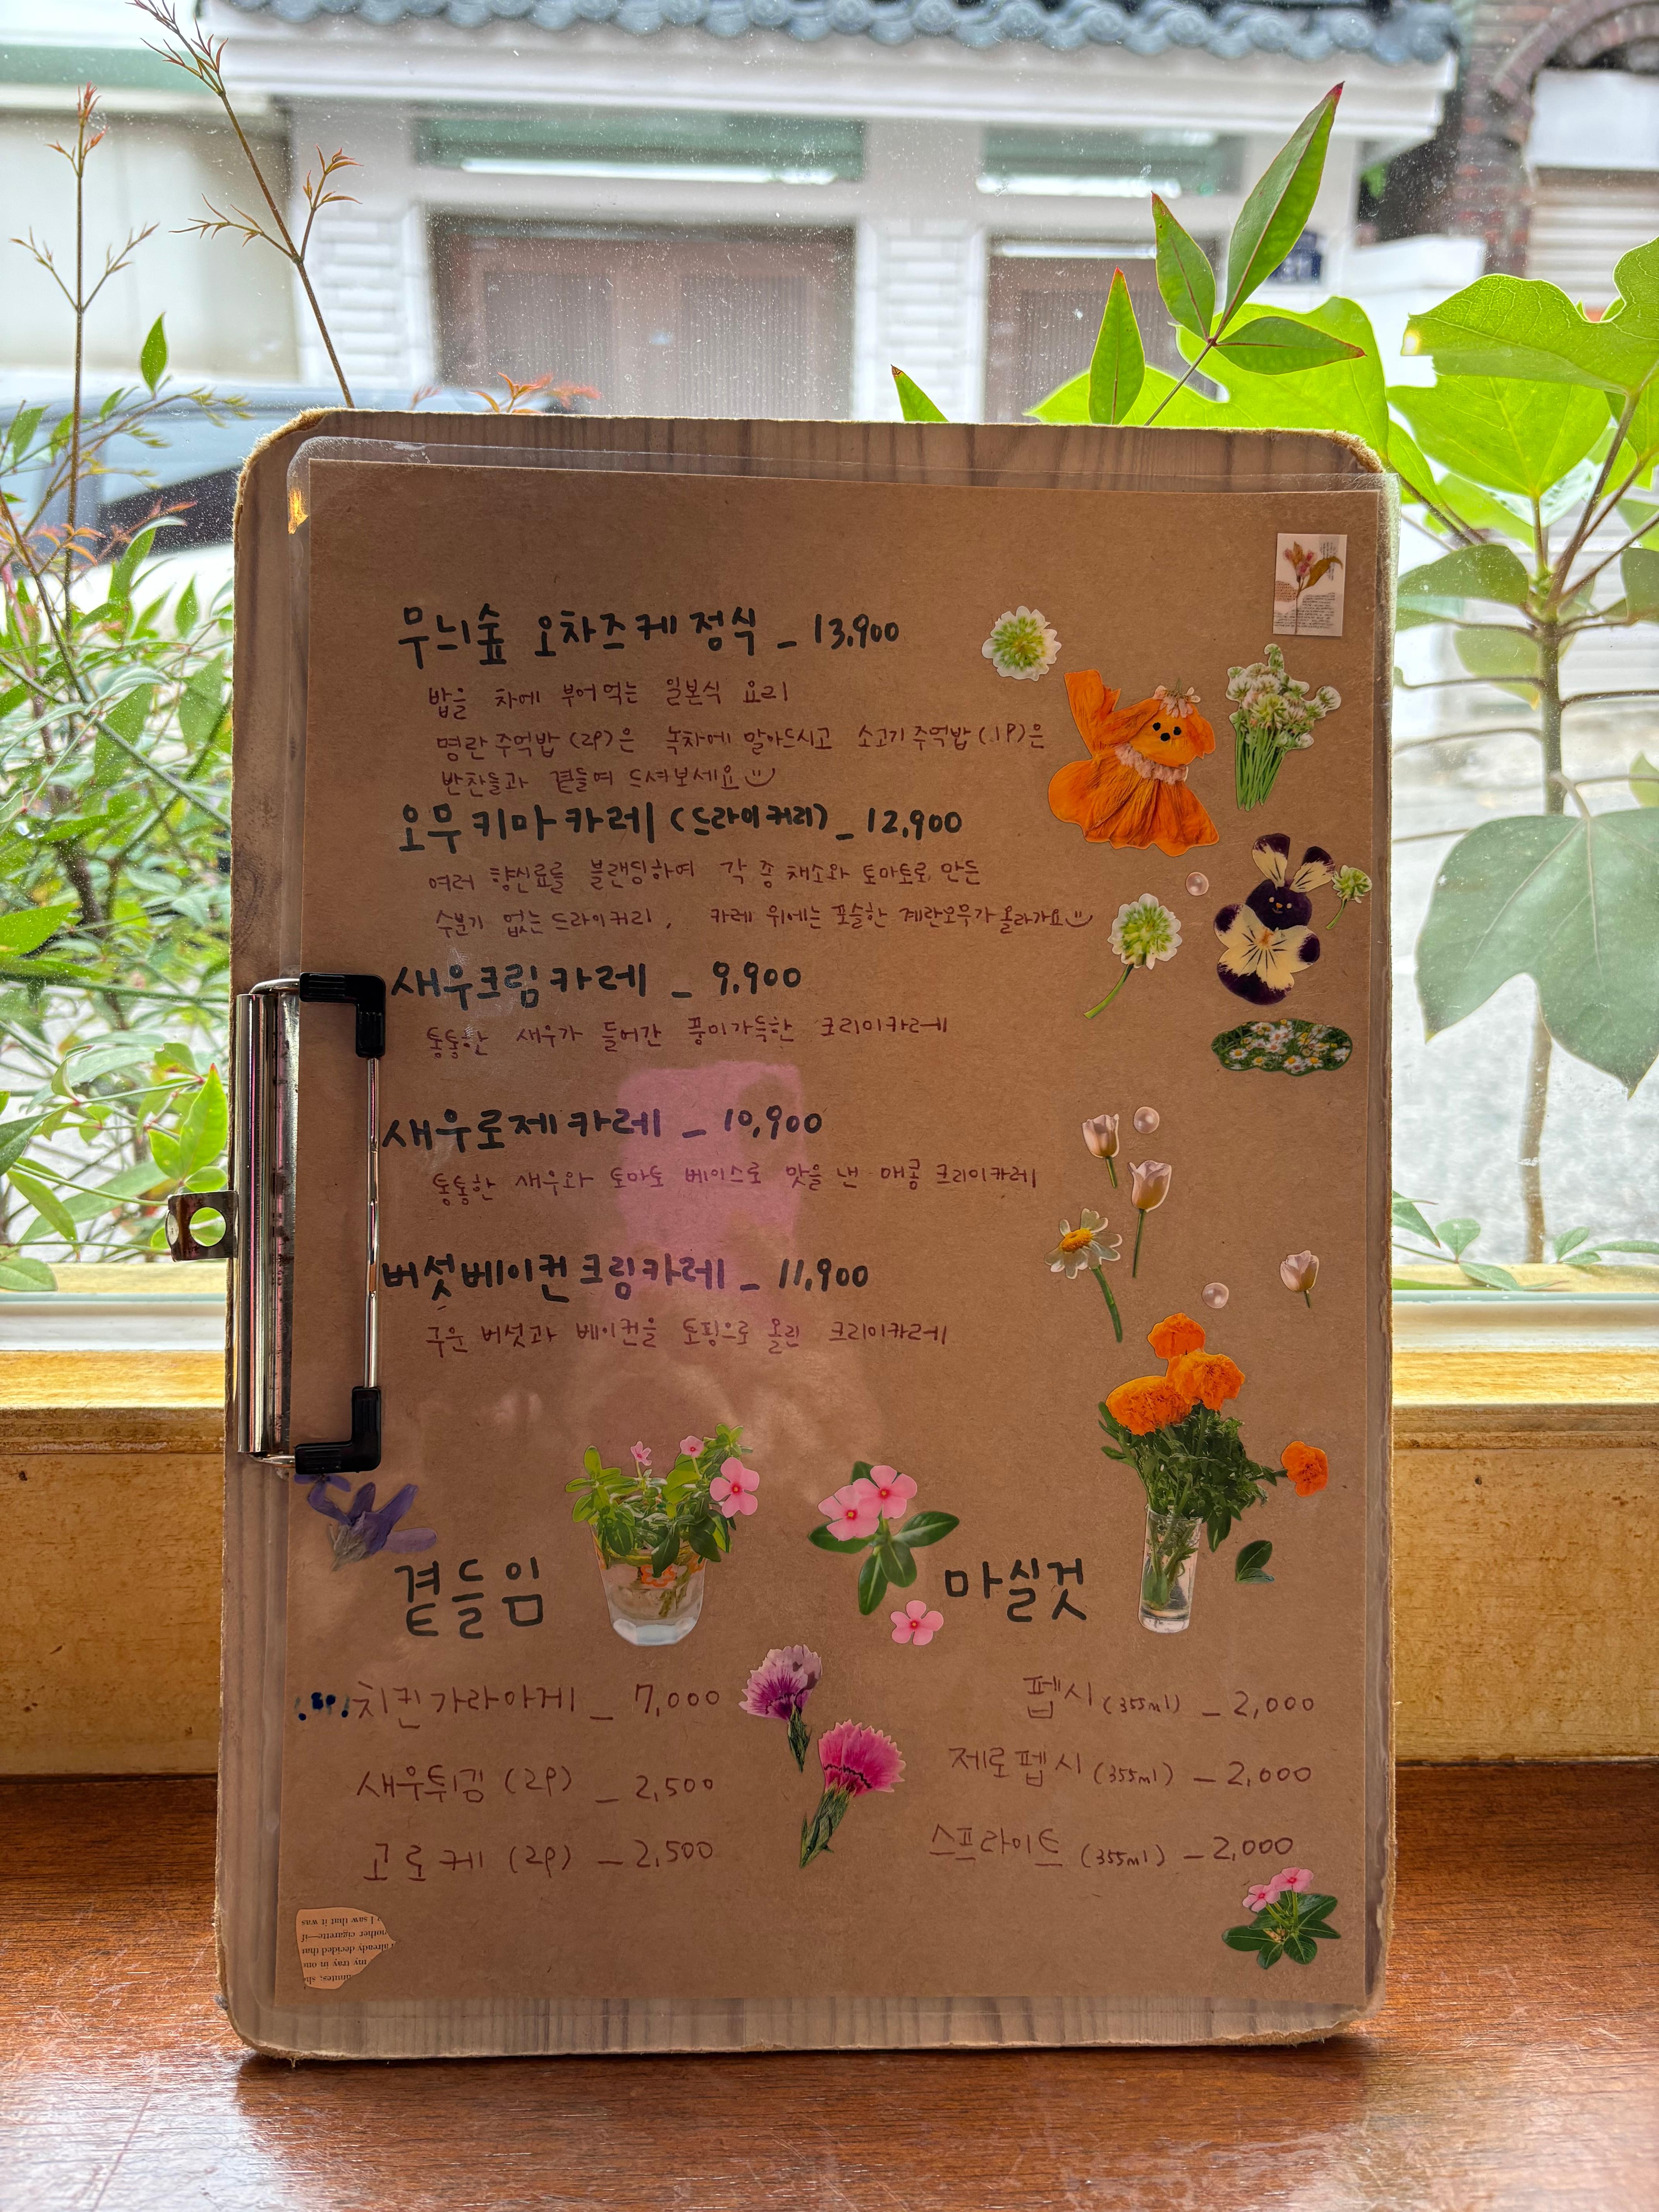 무늬숲 오차즈케 정식 _ 13,900
밥을 차에 부어 먹는 일본식 요리
명란주먹밥(2P)은 녹차에 말아드시고 소고기주먹밥(1P)은
반찬들과 곁들여 드셔보세요
오무키마카레(드라이커리) _ 12,900
여러 향신료를 블랜딩하여 각 종 채소와 토마토로 만든
수분기 없는 드라이커리, 카레 위에는 포슬한 계란오무가 올라가요
새우크림카레 _ 9,900
통통한 새우가 들어간 풍미가득한 크리미카레
새우로제카레 _ 10,900
통통한 새우와 토마토 베이스로 맛을 낸 매콤 크리미카레
버섯베이컨크림카레 _ 11,900
구운 버섯과 베이컨을 토핑으로 올린 크리미카레
곁들임
치킨가라아게 _ 7,000
새우튀김 (2P) _ 2,500
고로케 (2P) _ 2,500
마실것
펩시 (355ml) _ 2,000
제로펩시 (355ml) _ 2,000
스프라이트 (355ml) _ 2,000
I saw that it was
nother cigarette—if
already decided that
my tray in one